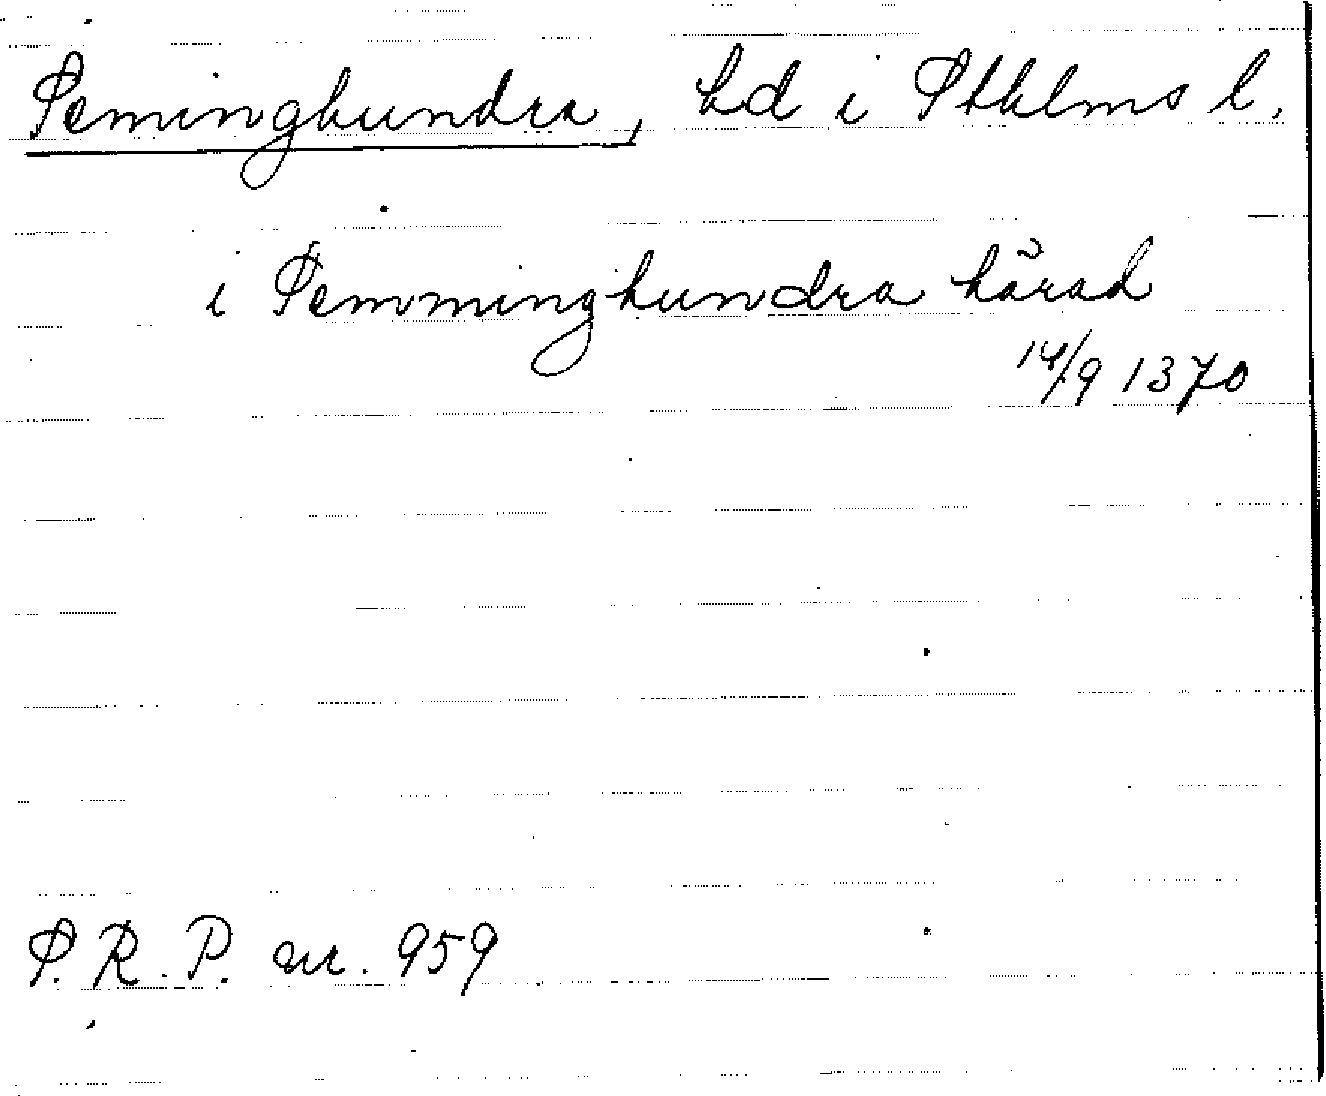 Seminghundra, hd i Sthlms l.
i Semminghundra härad
14/9 1370
S.R.P. nr. 959